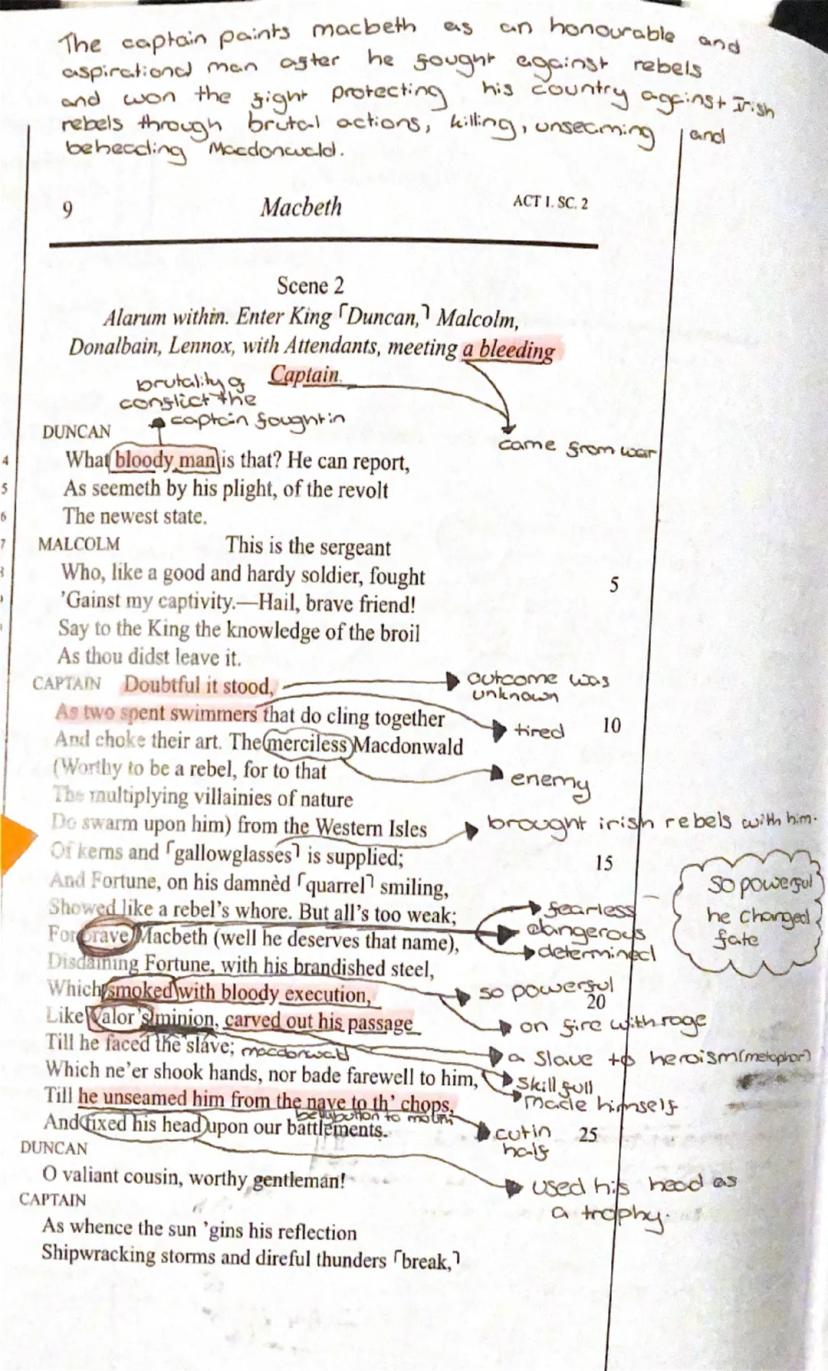 The captain paints macbeth as an honourable and
aspirational man after he fought against rebels
and won the fight protecting his country against Irish
rebels through brutal actions, killing, unseaming and
beheading Macdonwald.
9 Macbeth ACT 1. SC. 2
Scene 2
Alarum within. Enter King ⌜Duncan,⌝ Malcolm,
Donalbain, Lennox, with Attendants, meeting a bleeding
Captain.
brutality of
conflict the
captain fought in
came from war
DUNCAN
4 What bloody man is that? He can report,
5 As seemeth by his plight, of the revolt
6 The newest state.
7 MALCOLM This is the sergeant
Who, like a good and hardy soldier, fought 5
'Gainst my captivity.—Hail, brave friend!
Say to the King the knowledge of the broil
As thou didst leave it.
CAPTAIN Doubtful it stood, outcome was
unknown
As two spent swimmers that do cling together 10
tired
And choke their art. The merciless Macdonwald
(Worthy to be a rebel, for to that enemy
The multiplying villainies of nature
Do swarm upon him) from the Western Isles brought irish rebels with him.
Of kerns and ⌜gallowglasses⌝ is supplied; 15
And Fortune, on his damnèd ⌜quarrel⌝ smiling,
Showed like a rebel's whore. But all's too weak; fearless
For brave Macbeth (well he deserves that name), dangerous
determined
So powerful
he changed
fate
Disdaining Fortune, with his brandished steel,
Which smoked with bloody execution, so powerful
20
Like Valor's minion, carved out his passage on fire with rage
Till he faced the slave; macdonwald a slave to heroism (metaphor)
Which ne'er shook hands, nor bade farewell to him, skillfull
made himself
Till he unseamed him from the nave to th' chops,
bellybutton to mouth
And fixed his head upon our battlements. cut in 25
half
DUNCAN
O valiant cousin, worthy gentleman! used his head as
a trophy.
CAPTAIN
As whence the sun 'gins his reflection
Shipwracking storms and direful thunders ⌜break,⌝